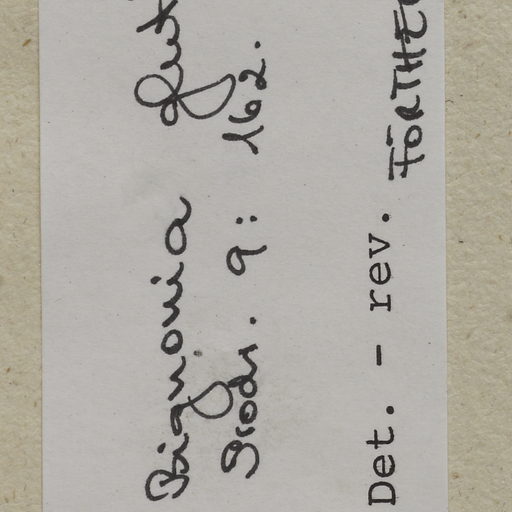 Bignonia
Prodr. 9: 162.
Det. - rev. FÖRTHE